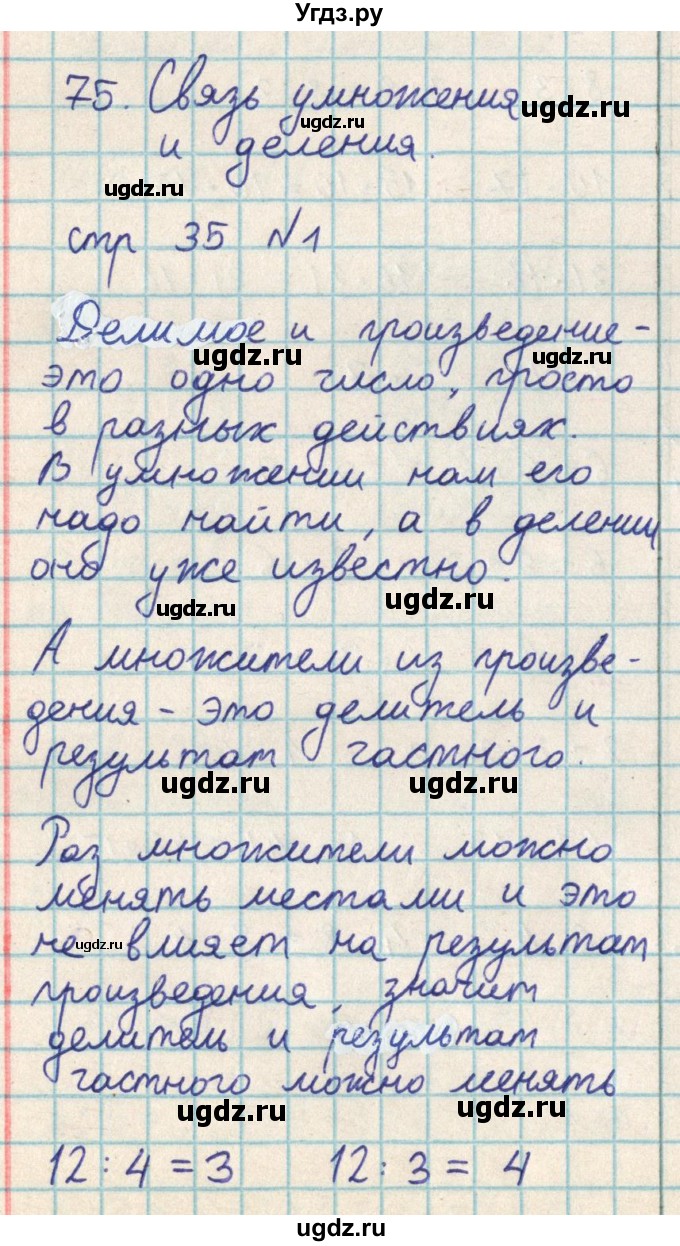 Угдз.ру
75. Связь умножения
ugdz.ru
ugdz.ru
и деления.
ugdz.ru
стр 35 №1
Делимое и произведение -
ugdz.ru
ugdz.ru
это одно число, просто
в разных действиях.
В умножении нам его
надо найти, а в делении
оно уже известно.
ugdz.ru
ugdz.ru
А множители из произве-
дения - это делитель и
результат частного.
ugdz.ru
ugdz.ru
Раз множители можно
менять местами и это
не влияет на результат
ugdz.ru
произведения, значит
делитель и результат
частного можно менять
ugdz.ru
ugdz.ru
12 : 4 = 3 12 : 3 = 4
ugdz.ru